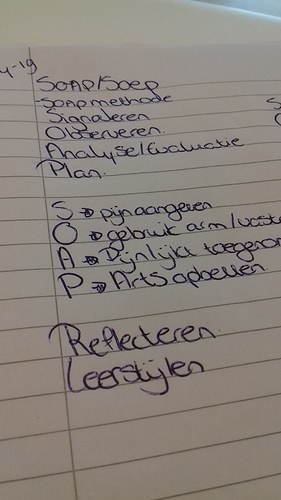 4-19
SOAP/Soep
Soapmethode
Signaleren
Observeren.
Analyse/Evaluatie
Plan.
S → pijn aangeven
O → gebruik arm/
A → Pijnlijke
P → Arts opbellen.
Reflecteren.
Leerstijlen